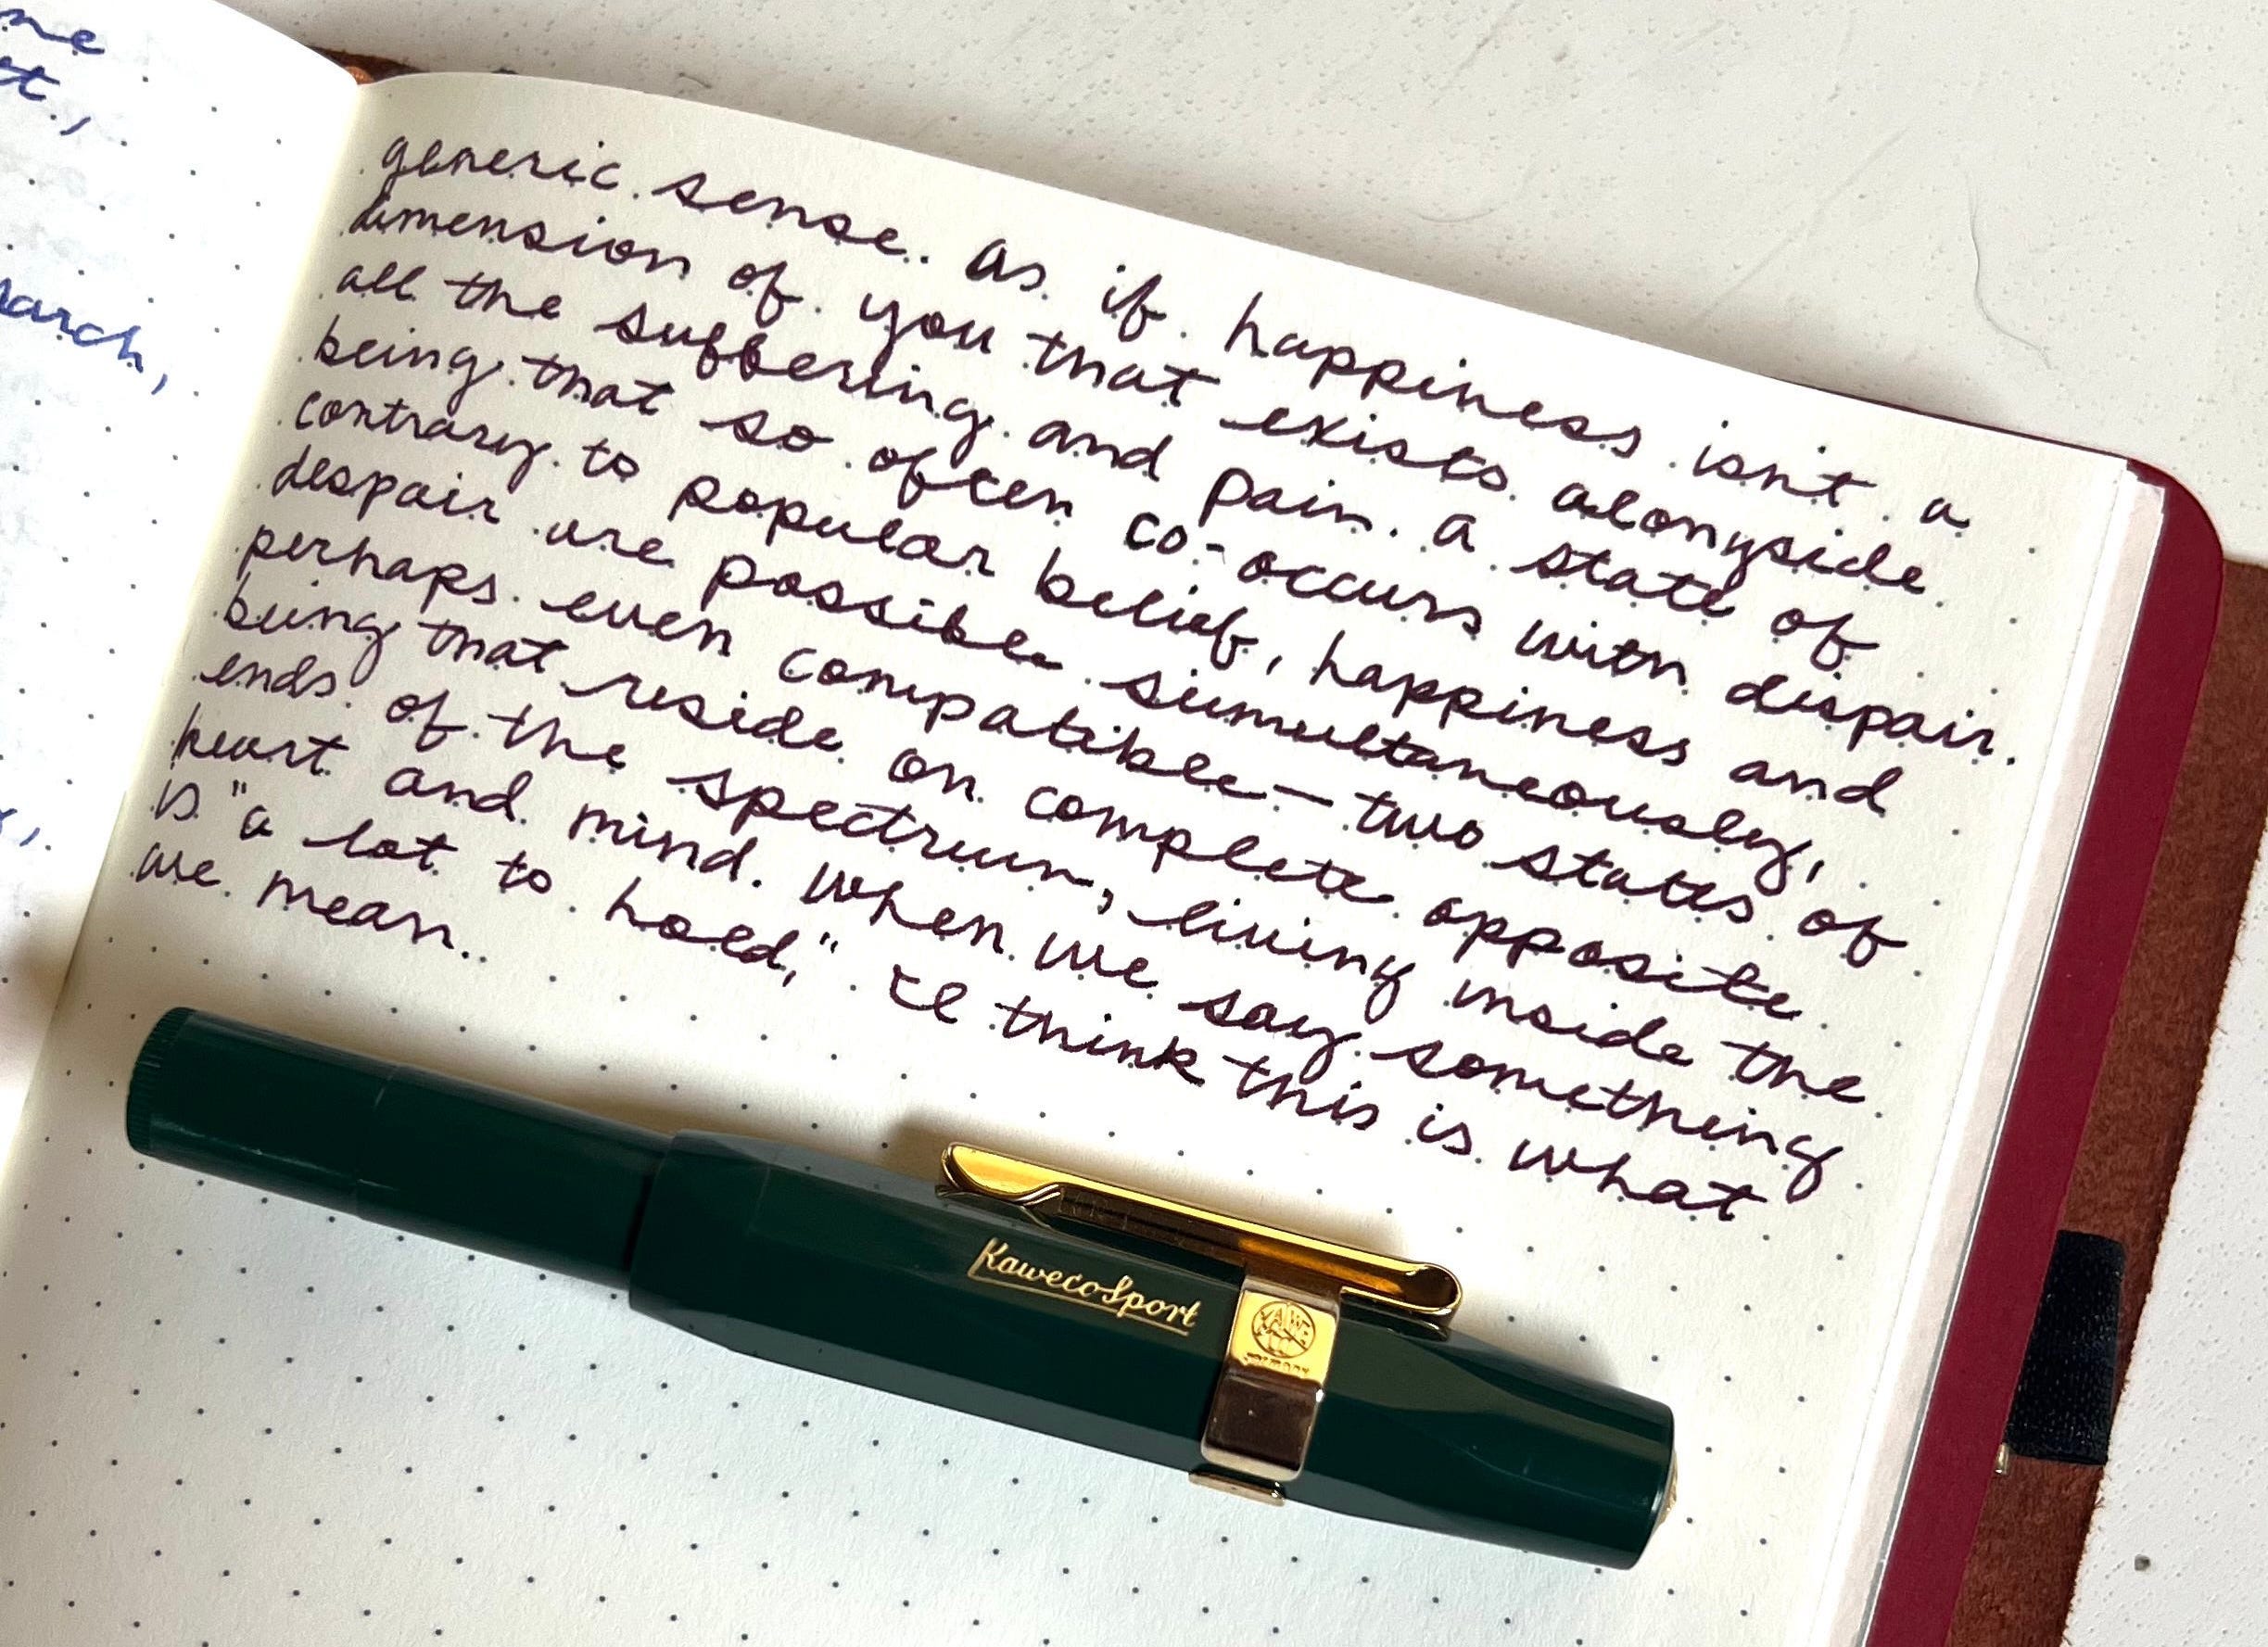 ne
et,
arch,
generic sense. as if happiness isn't a
dimension of you that exists alongside
all the suffering and pain. a state of
being that so often co-occurs with despair.
contrary to popular belief, happiness and
despair are possible simultaneously,
perhaps even compatible—two states of
being that reside on complete opposite
ends of the spectrum, living inside the
heart and mind. when we say something
is "a lot to hold," I think this is what
we mean.
KawecoSport